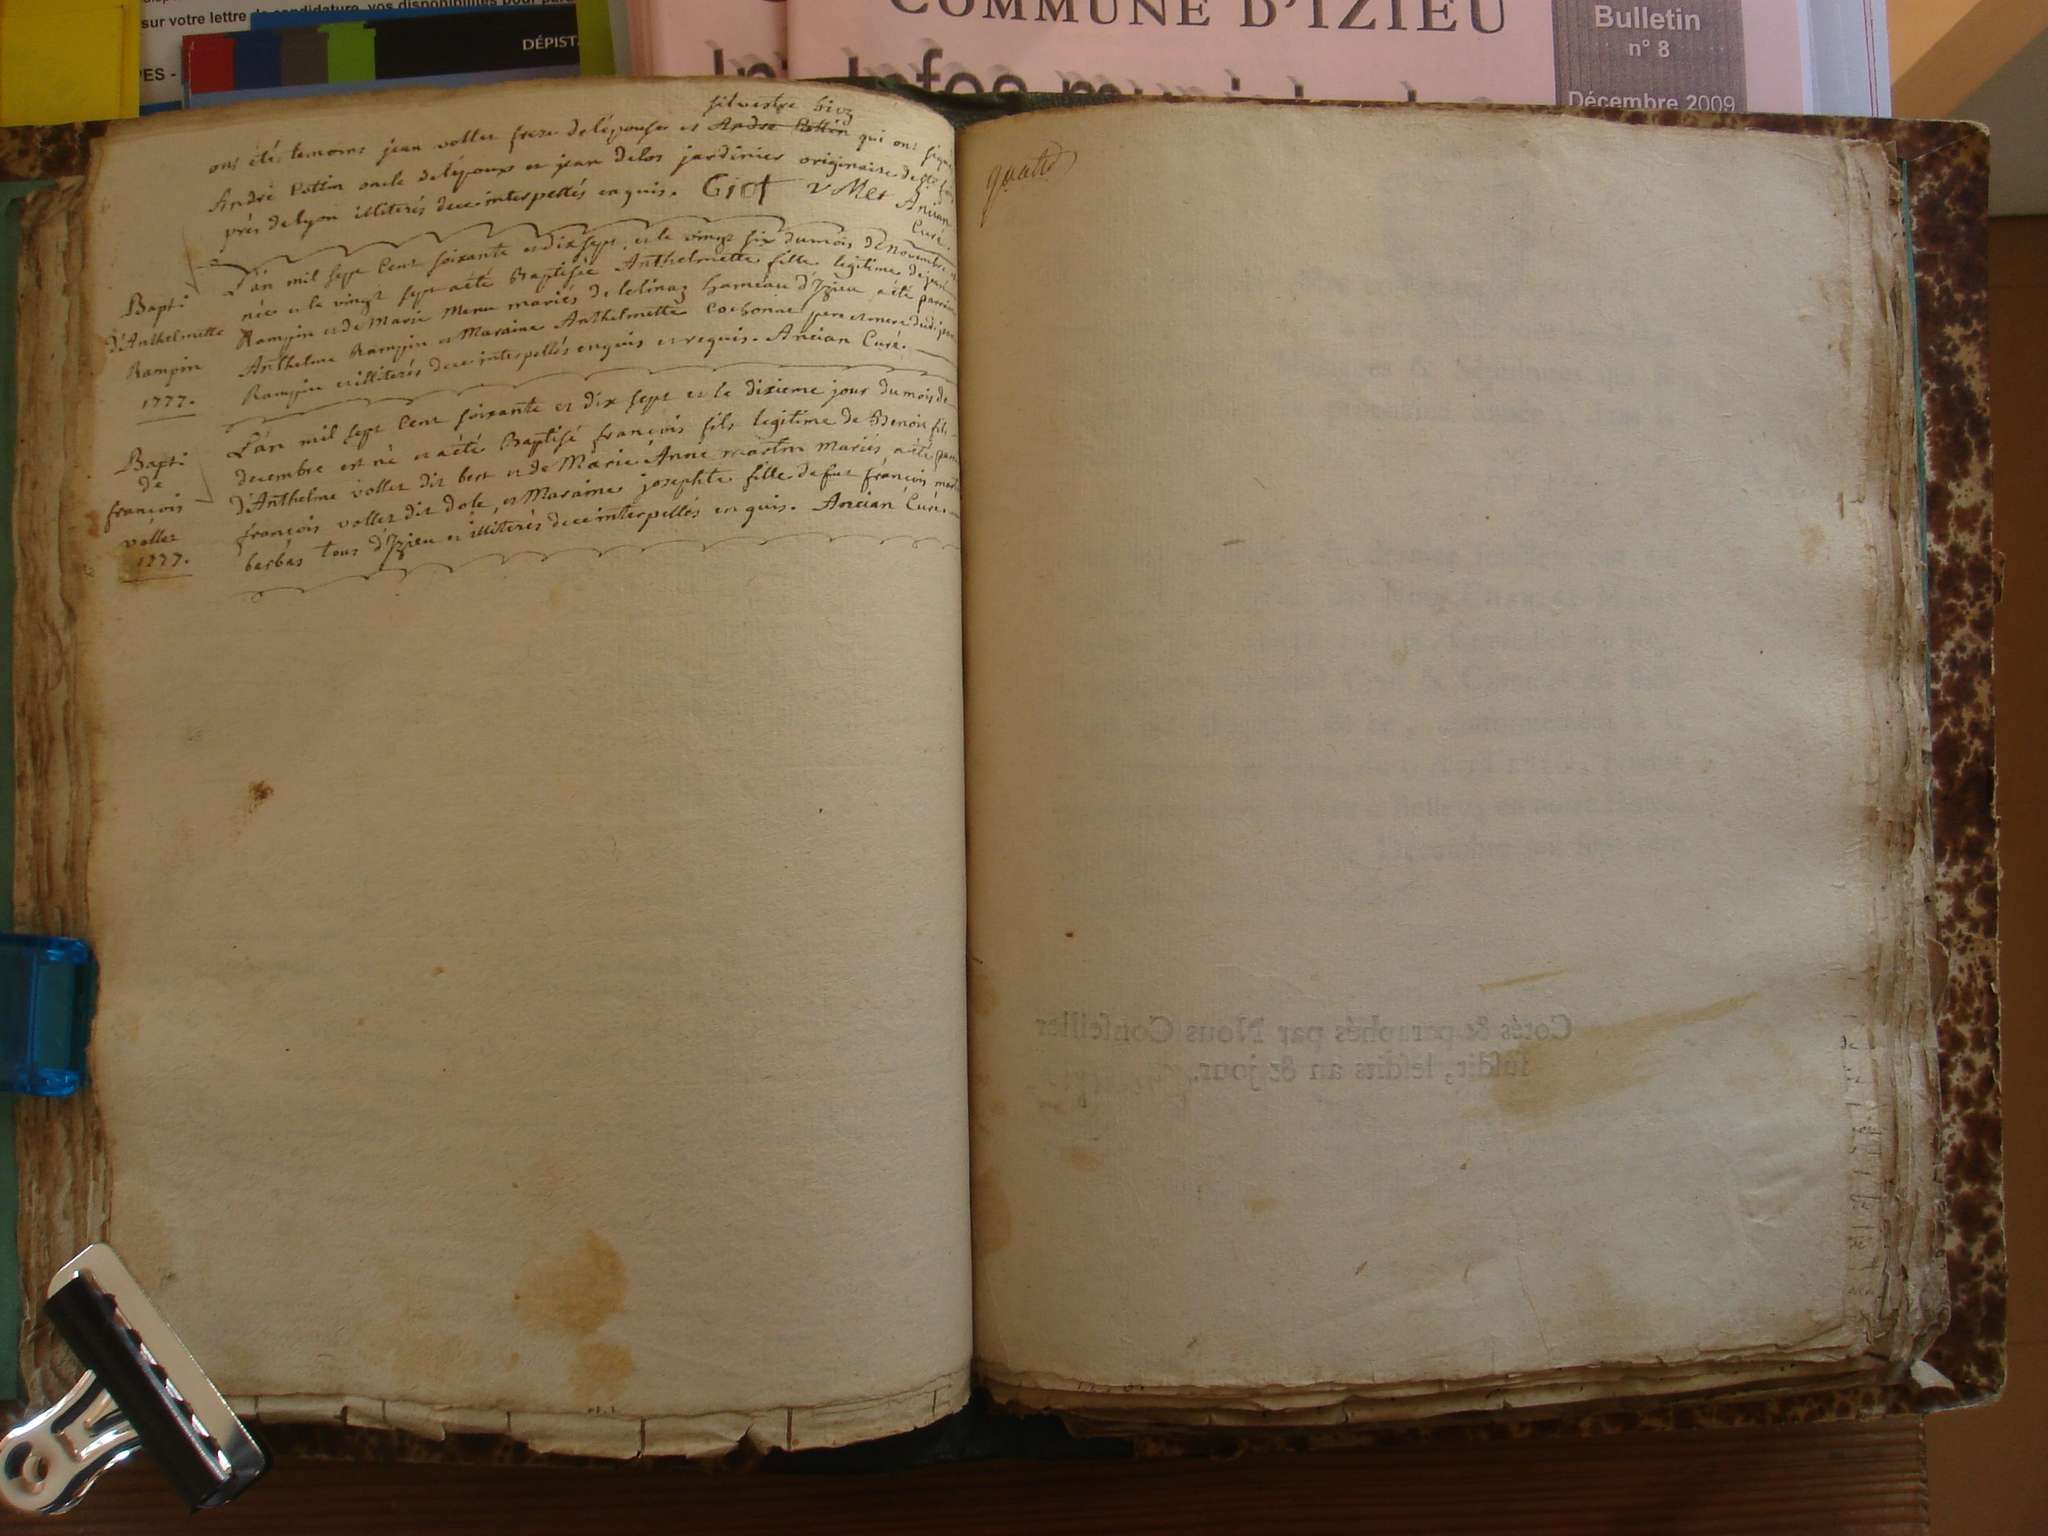 sur votre lettre de candidature, vos disponibilités pour
DÉPIST
COMMUNE D'IZIEU
Bulletin
n° 8
Infos
Décembre 2009
silvestre
ont été temoins jean vollet frere de lépouse et André Pottin qui ont signé
André Pottin oncle de lépoux et jean delos jardinier originaire de
près de lyon illiterés de ce interpellés enquis. Giot vollet Ancian
Curé.
Bapt:
d'Anthelmette
Rampin
1777.
L'án mil sept Cent soixante et dix sept, et le vingt six du mois de novembre est
née et le vingt sept a été Baptisée Anthelmette fille legitime de
Rampin et de Marie Menu mariés de lelinaz hameau d'Izieu a été parrain
Anthelme Rampin et Maraine Anthelmette Cochonat pere et mere dudit
Rampin et illiterés de ce interpellés enquis et requis. Ancian Curé.
Bapt:
de
françois
vollet
1777.
L'án mil sept Cent soixante et dix sept et le dixieme jour du mois de
decembre est né et a été Baptisé françois fils legitime de Benoit fils
d'Anthelme vollet dit bert et de Marie Anne martin mariés, a été
françois vollet dit dole, et Maraine josephte fille de fut françois
barbas tous d'Izieu et illiterés de ce interpellés enquis. Ancian Curé.
quatre
Cotés & paraphés par Nous Conseiller
susdit, lesdits an & jour.